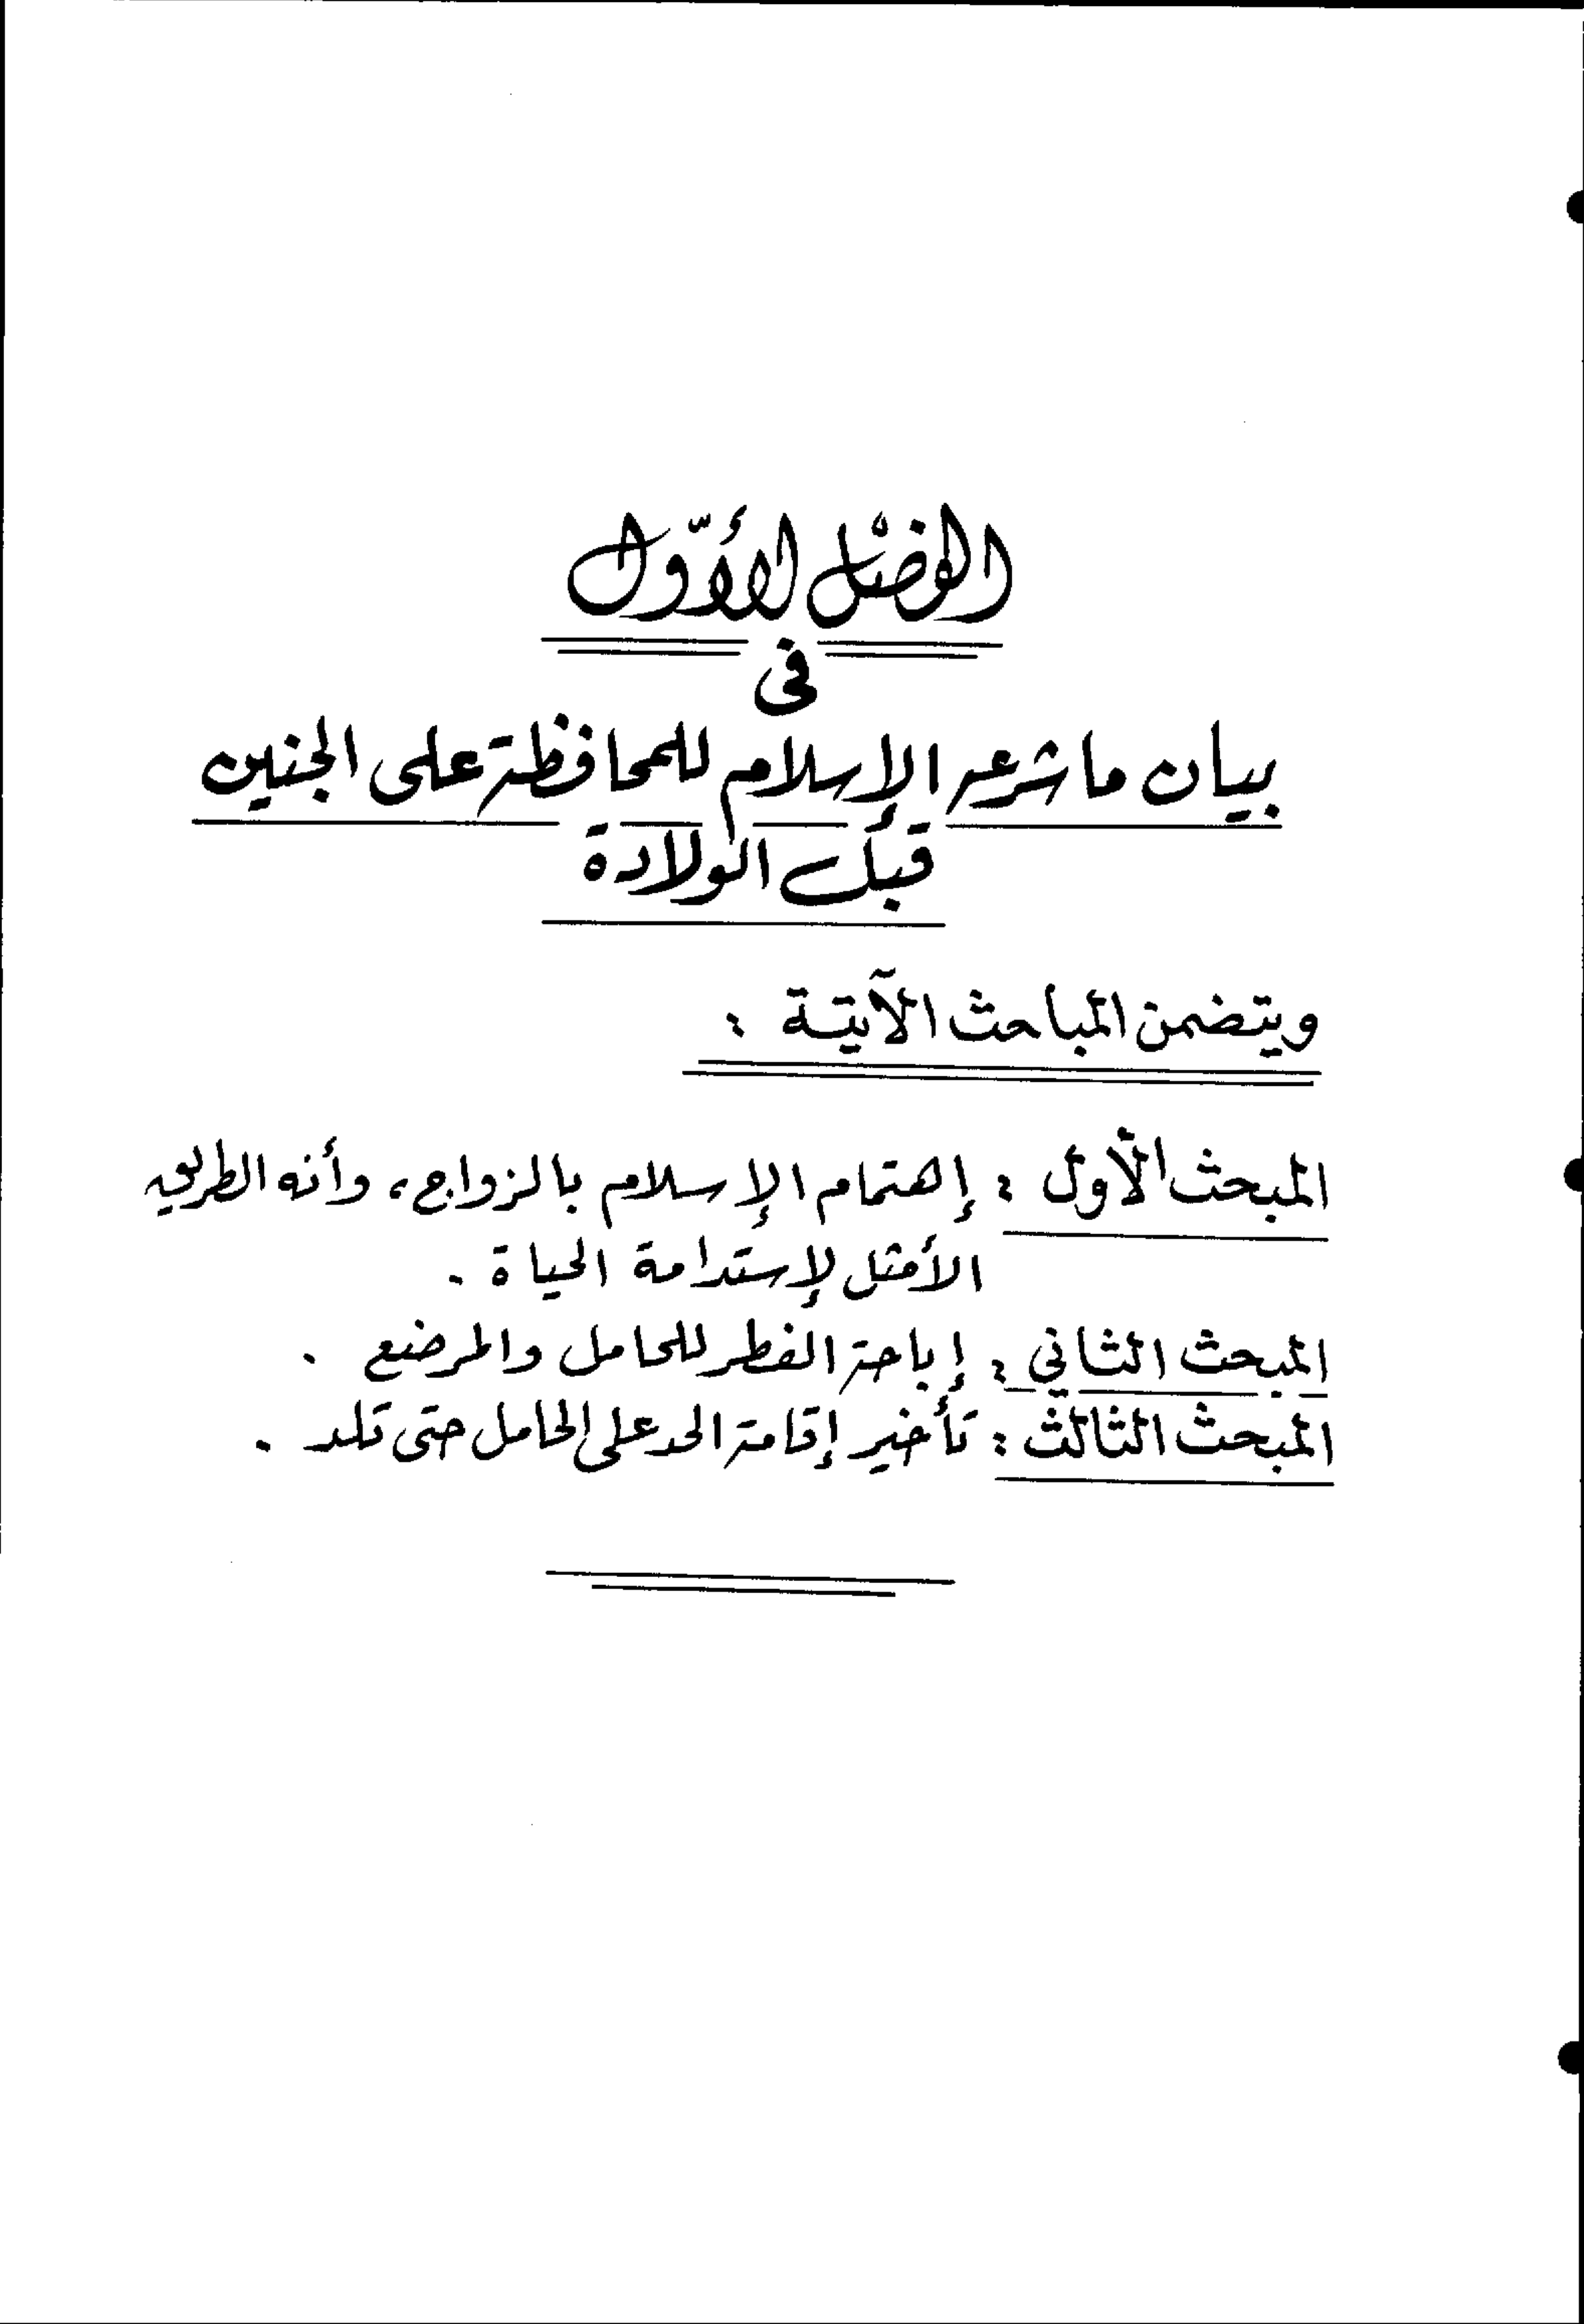 الفصل الأوّل
فى
بيان ما شرعه الإسلام للمحافظة على الجنين
قبل الولادة
ويتضمن المباحث الآتية :
المبحث الأول : إهتمام الإسلام بالزواج، وأنه الطريق
الأمثل لإستدامة الحياة .
المبحث الثاني : إباحة الفطر للحامل والمرضع .
المبحث الثالث : تأخير إقامة الحد على الحامل حتى تلد .